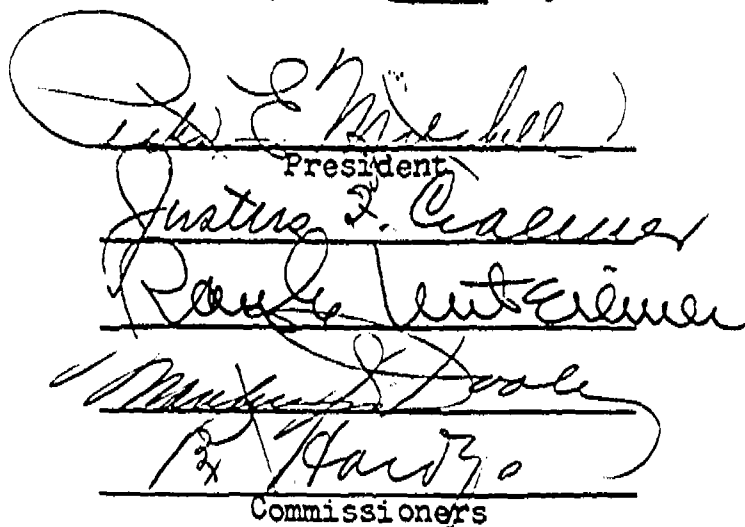 Peter E. Mitchell
President
Justus F. Craemer
Ray E. Untereiner
Matthew J. Dooley
Rex Hardy
Commissioners